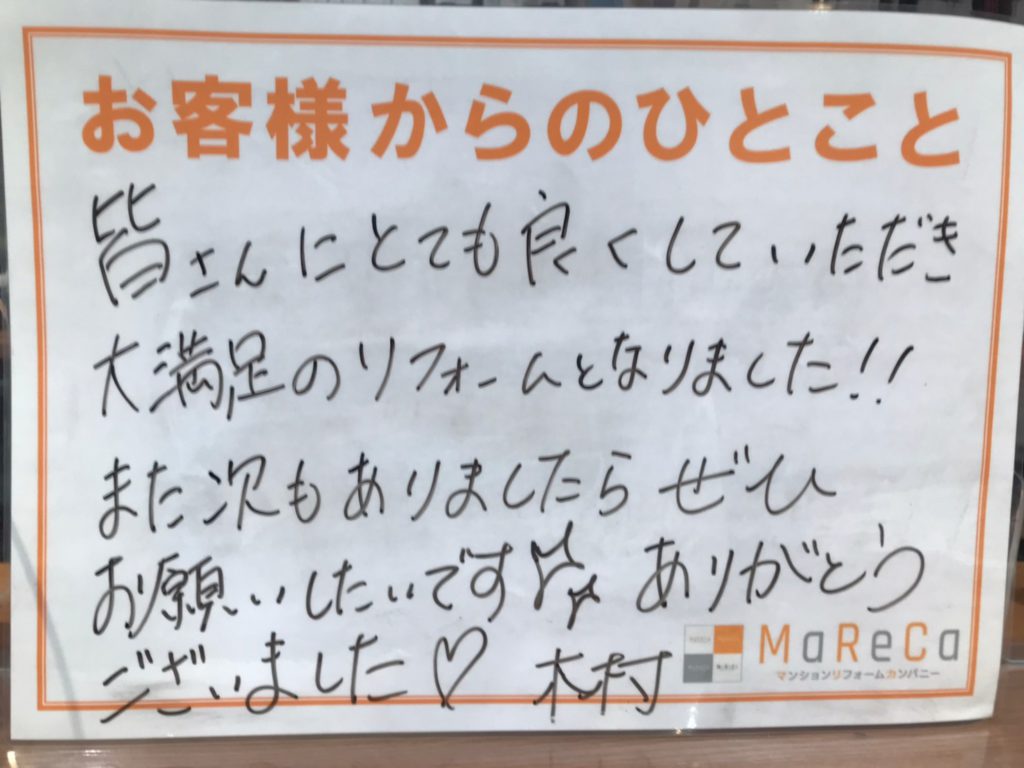 お客様からのひとこと
皆さんにとても良くしていただき
大満足のリフォームとなりました!!
また次もありましたらぜひ
お願いしたいです ありがとう
ございました♡ 木村
MaReCa
マンションリフォームカンパニー